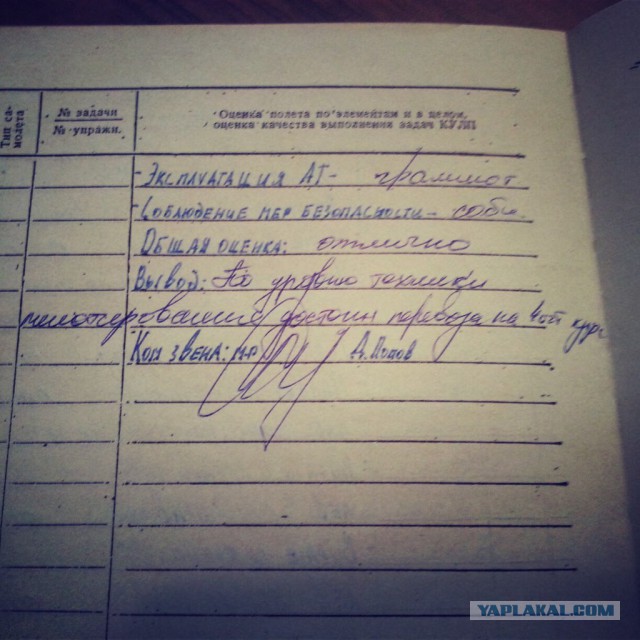 Тип са-
молета
№ задачи
№ упражн.
Оценка полета по элементам и в целом,
оценка качества выполнения задач КУЛП
-Эксплуатация АТ- грамот
-Соблюдение мер безопасности- собл.
Общая оценка: отлично
Вывод: По уровню техники
пилотирования достоин перевода на 4ый курс
Ком звена: м-р А.Попов
YAPLAKAL.COM